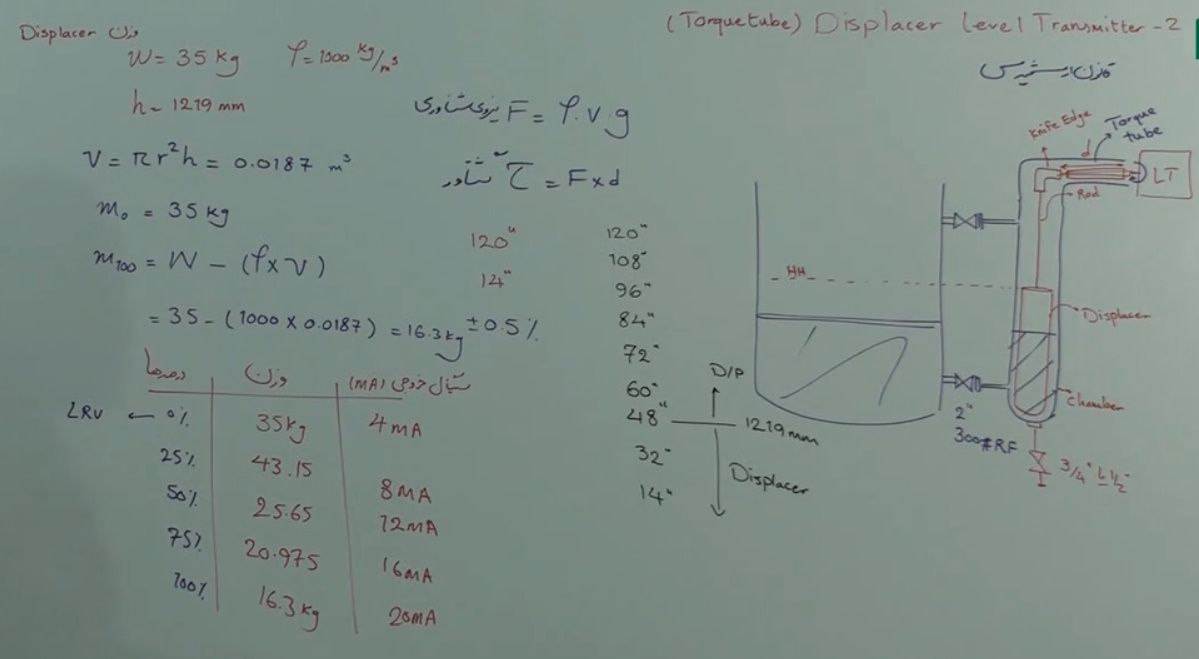 (Torque tube) Displacer Level Transmitter - 2
قانون ارشمیدس
وزن Displacer
W = 35 kg ρ = 1000 kg/m³
h = 1219 mm
V = πr²h = 0.0187 m³
m₀ = 35 kg
m₁₀₀ = W - (ρ x V)
= 35 - (1000 x 0.0187) = 16.3 kg ±0.5%
نیروی شناوری F = ρ.v.g
τ = F x d
درصدها | وزن | سیگنال خروجی (MA)
LRV ← 0% | 35kg | 4 MA
25% | 43.15 | 8 MA
50% | 25.65 | 12 MA
75% | 20.975 | 16 MA
100% | 16.3 kg | 20 MA
120"
14"
120"
108"
96"
84"
72"
60"
48" 1219 mm
32"
14"
D/P
Displacer
HH
Knife Edge
Torque tube
d
LT
Rod
Displacer
Chamber
2"
300# RF
3/4" L 1/2"